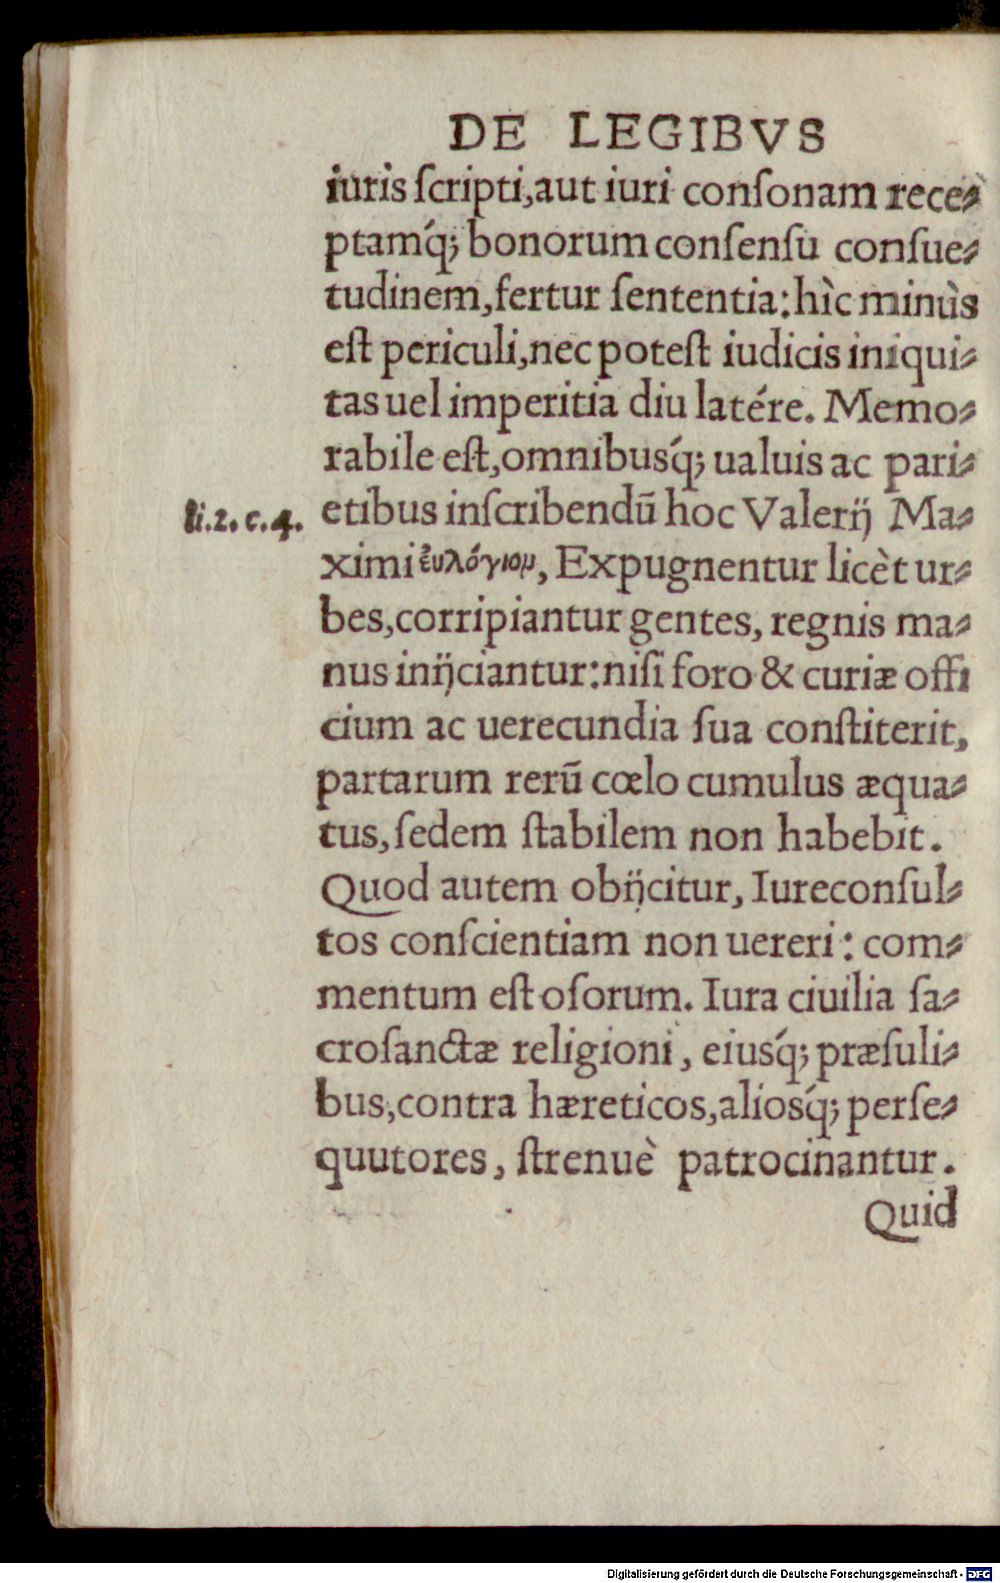 DE LEGIBVS
iuris ſcripti,aut iuri conſonam rece⸗
ptamq́; bonorum conſenſu conſue⸗
tudinem,fertur ſententia:hìc minùs
eſt periculi,nec poteſt iudicis iniqui⸗
tas uel imperitia diu latére. Memo⸗
rabile eſt,omnibusq́; ualuis ac pari⸗
li.2.c.4. etibus inſcribendū hoc Valerij Ma⸗
ximi ἐυλόγιομ, Expugnentur licèt ur⸗
bes,corripiantur gentes, regnis ma⸗
nus inijciantur:niſi foro & curiæ offi
cium ac uerecundia ſua conſtiterit,
partarum rerū cœlo cumulus æqua⸗
tus,ſedem ſtabilem non habebit.
Quod autem obijcitur, Iureconſul⸗
tos conſcientiam non uereri: com⸗
mentum eſt oſorum. Iura ciuilia ſa⸗
croſanctæ religioni, eiusq́; præſuli⸗
bus,contra hæreticos,aliosq́; perſe⸗
quutores, ſtrenuè patrocinantur.
Quid
Digitalisierung gefördert durch die Deutsche Forschungsgemeinschaft - DFG